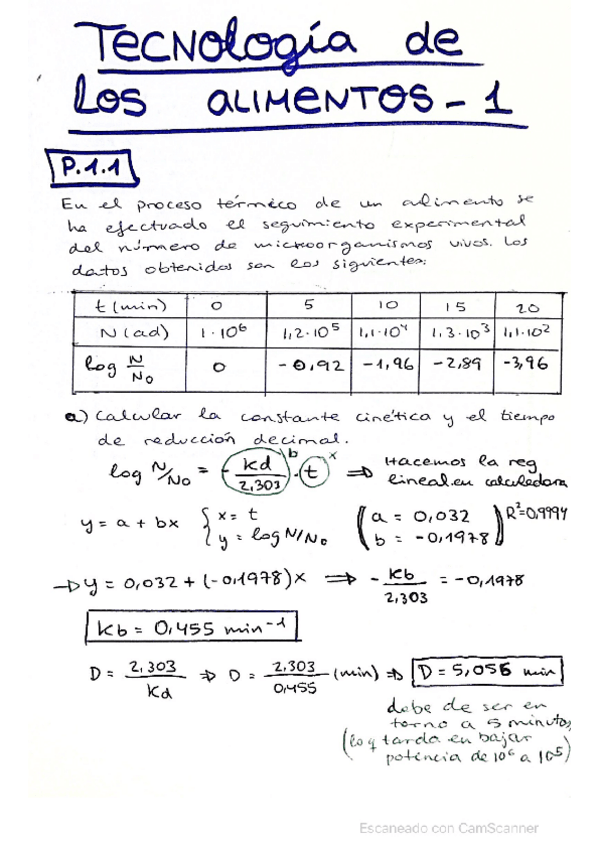 Tecnología de
los alimentos - 1
P.1.1
En el proceso térmico de un alimento se
ha efectuado el seguimiento experimental
del número de microorganismos vivos. Los
datos obtenidos son los siguientes:
t (min) 0 5 10 15 20
N (ad) 1·10⁶ 1,2·10⁵ 1,1·10⁴ 1,3·10³ 1,1·10²
log N/N₀ 0 -0,92 -1,96 -2,89 -3,96
a) Calcular la constante cinética y el tiempo
de reducción decimal.
log N/N₀ = - kd/2,303 · t ⇒ Hacemos la reg
b x
lineal en calculadora
y = a + bx { x = t y = log N/N₀ ( a = 0,032 b = -0,1978 ) R²=0,9994
→ y = 0,032 + (-0,1978)x ⇒ - kb/2,303 = -0,1978
kb = 0,455 min⁻¹
D = 2,303/kd ⇒ D = 2,303/0,455 (min) ⇒ D = 5,056 min
debe de ser en
torno a 5 minutos,
(lo q tarda en bajar
potencia de 10⁶ a 10⁵)
Escaneado con CamScanner